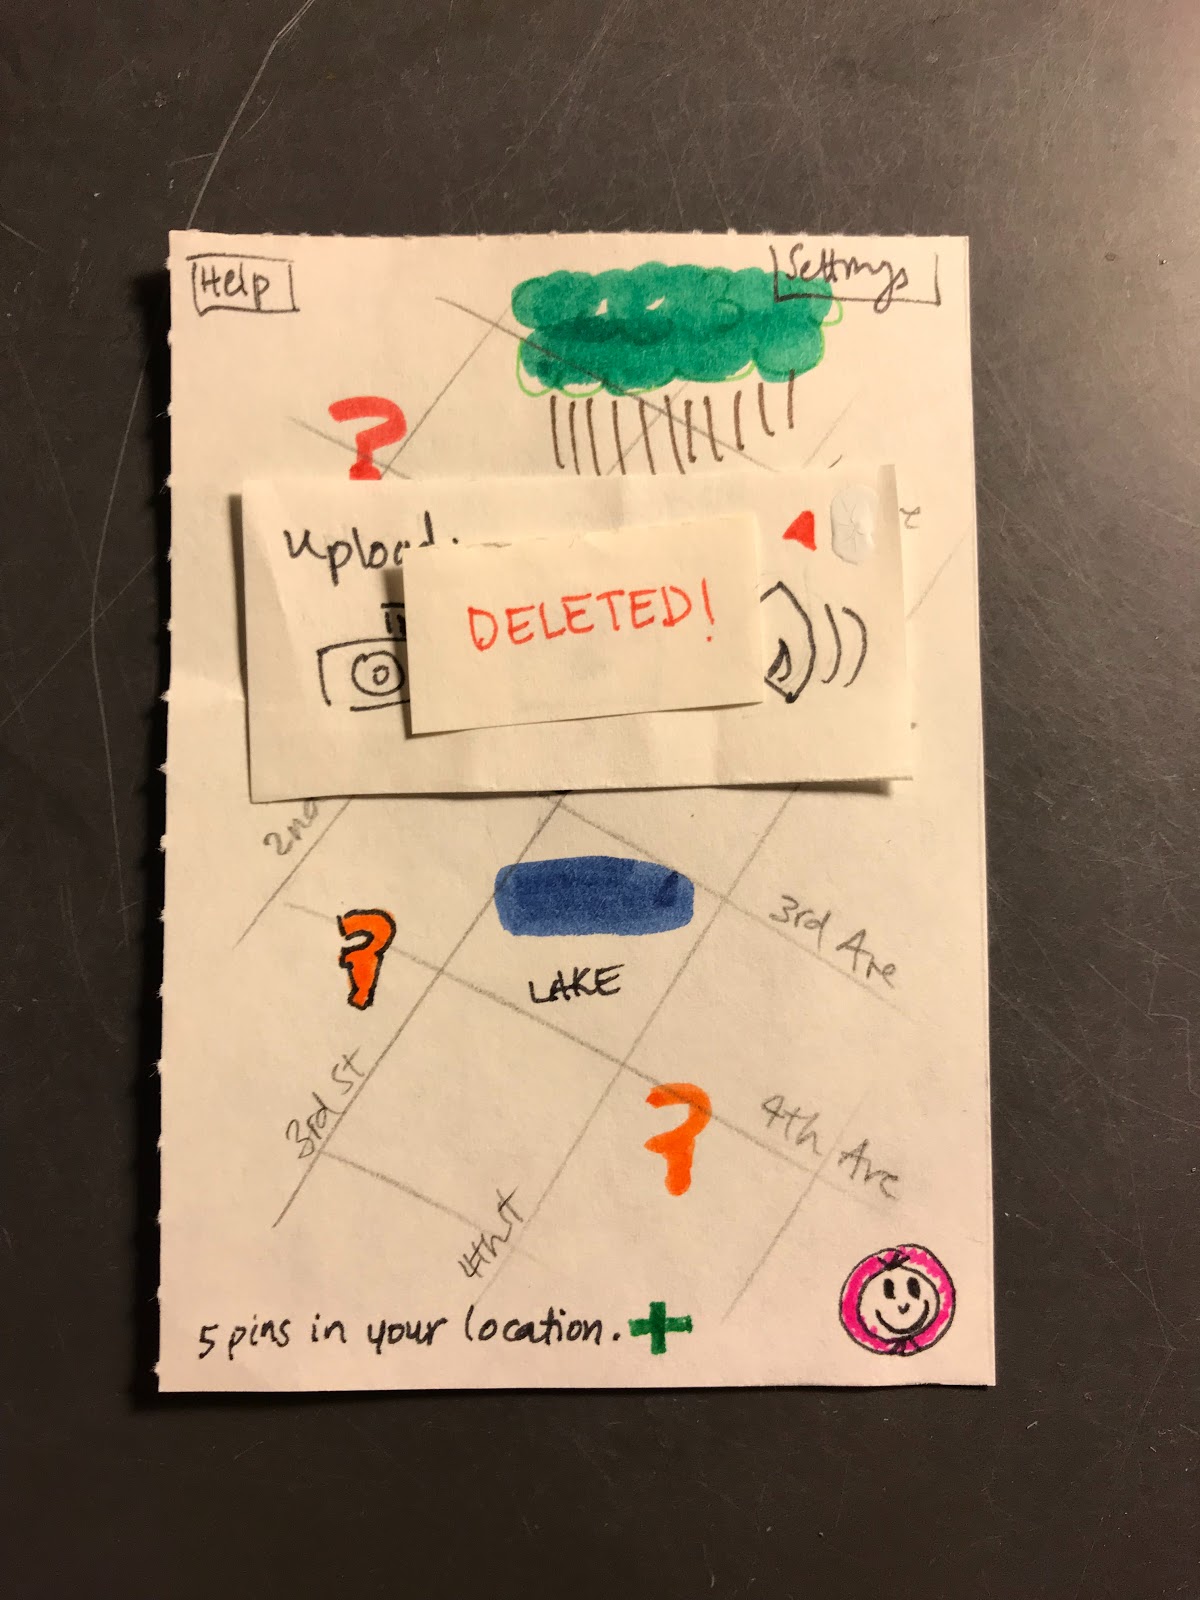 Help
Settings
Upload.
DELETED!
2nd
3rd Ave
LAKE
3rd St
4th Ave
5 pins in your location.